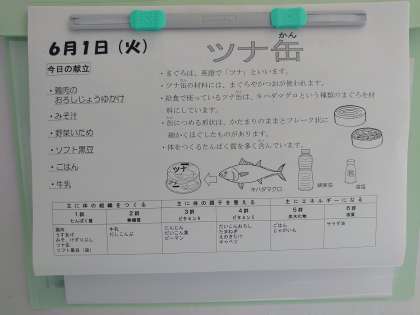 6月1日（火）
ツナ缶
かん
今日の献立
・鶏肉の
おろしじょうゆかけ
・みそ汁
・野菜いため
・ソフト黒豆
・ごはん
・牛乳
・まぐろは、英語で「ツナ」といいます。
・ツナ缶の材料には、まぐろやかつおが使われます。
・給食で使っているツナ缶は、キハダマグロという種類のまぐろを材
料にしています。
・缶につめる形状は、かたまりのままとフレーク状に
細かくほぐしたものがあります。
・体をつくるたんぱく質を多く含んでいます。
ツナ
キハダマグロ
主に体の組織をつくる
主に体の調子を整える
主にエネルギーになる
1群
たんぱく質
2群
無機質
3群
4群
5群
炭水化物
6群
脂質
鶏肉
うすあげ
ツナ缶
牛乳
だしこんぶ
にんじん
ピーマン
だいこんおろし
たまねぎ
えのきたけ
キャベツ
ごはん
じゃがいも
サラダ油